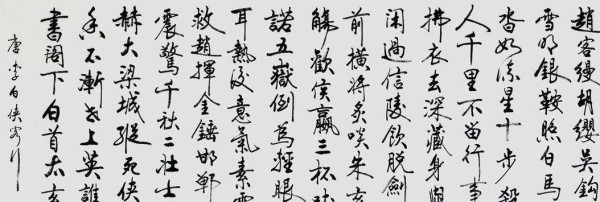 趙客縵胡纓吳鈎
雪明銀鞍照白馬
沓如流星十步殺
人千里不留行事
拂衣去深藏身
閑過信陵飲脫劍
前橫將炙啖朱亥
觴勸侯嬴三杯吐
諾五嶽倒為輕眼
耳熱後意氣素霓
救趙揮金錘邯鄲
震驚千秋二壯士
赫大梁城縱死俠
香不慚世上英誰
書閣下白首太玄
唐李白俠客行